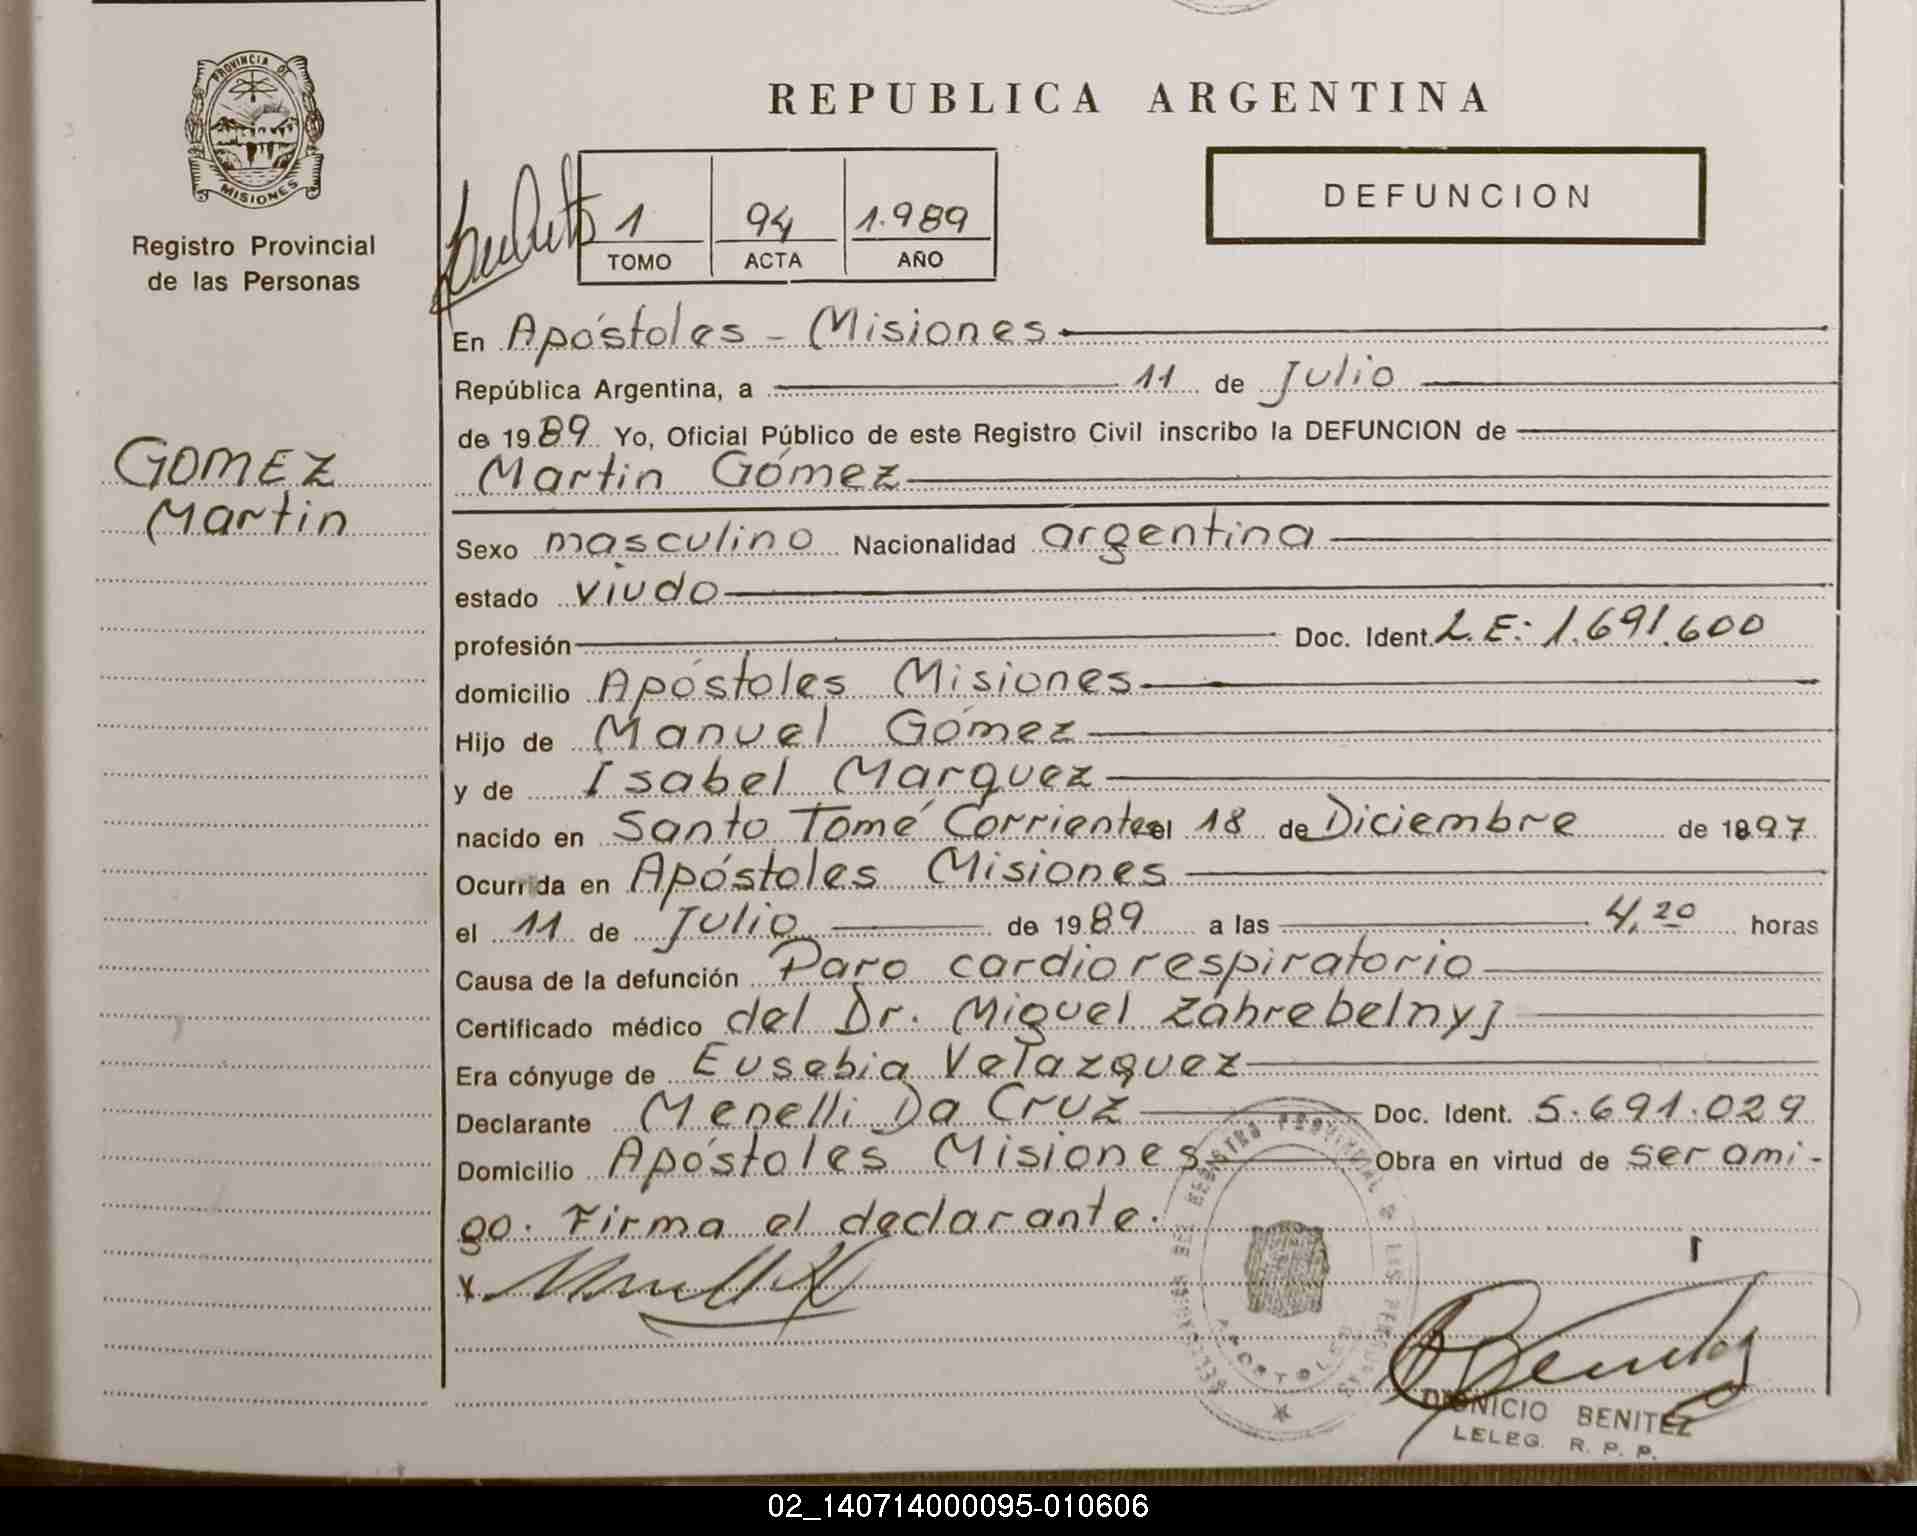 PROVINCIA DE
MISIONES
Registro Provincial
de las Personas
GOMEZ
Martin
REPUBLICA ARGENTINA
1 94 1.989
TOMO ACTA AÑO
DEFUNCION
En Apóstoles - Misiones
República Argentina, a 11 de Julio
de 1989 Yo, Oficial Público de este Registro Civil inscribo la DEFUNCION de
Martin Gómez
Sexo masculino Nacionalidad argentina
estado viudo
profesión Doc. Ident. L.E: 1.691.600
domicilio Apóstoles Misiones
Hijo de Manuel Gómez
y de Isabel Marquez
nacido en Santo Tomé Corrientes el 18 de Diciembre de 1897
Ocurrida en Apóstoles Misiones
el 11 de Julio de 1989 a las 4,20 horas
Causa de la defunción Paro cardiorespiratorio
Certificado médico del Dr. Miguel Zahrebelnyj
Era cónyuge de Eusebia Velazquez
Declarante Menelli Da Cruz Doc. Ident. 5.691.029
Domicilio Apóstoles Misiones Obra en virtud de ser ami-
go. Firma el declarante.
DIONICIO BENITEZ
LELEG. R. P. P.
02_140714000095-010606